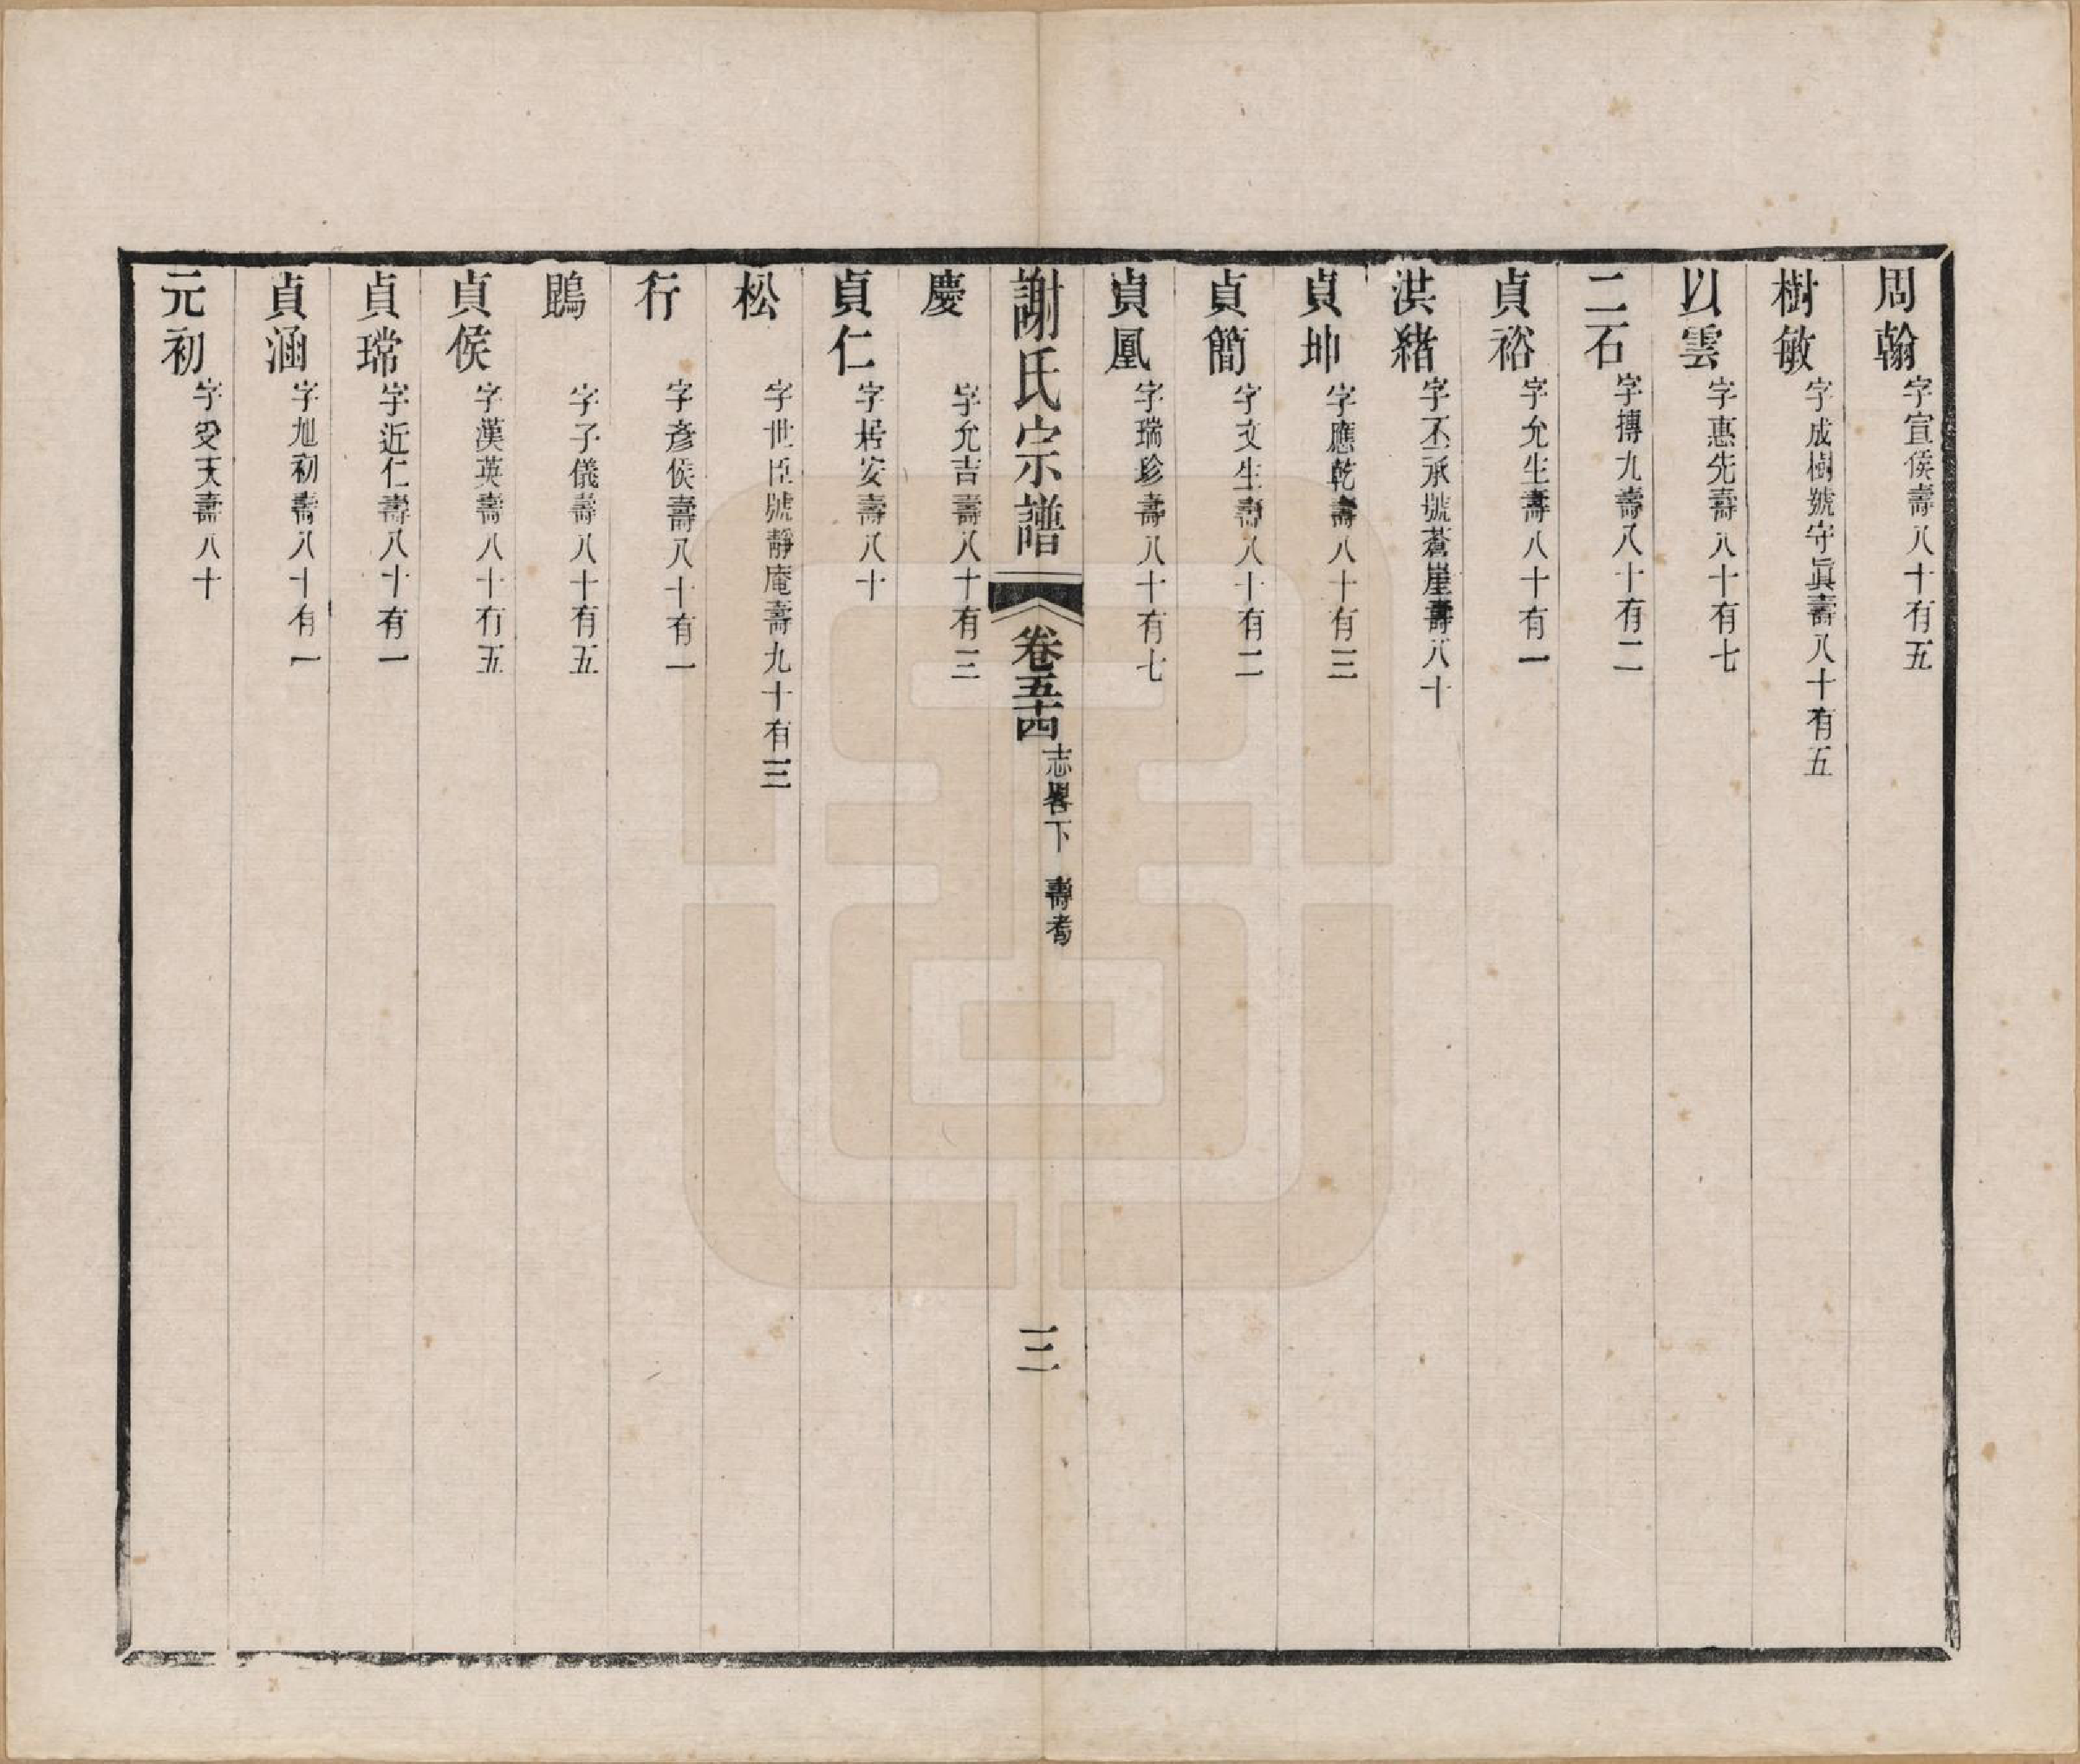 周翰 字宣侯壽八十有五
樹敏 字成樹號守眞壽八十有五
以雲 字惠先壽八十有七
二石 字摶九壽八十有二
貞裕 字允生壽八十有一
洪緒 字丕承號蒼崖壽八十
貞坤 字應乾壽八十有三
貞簡 字文生壽八十有二
貞凰 字瑞珍壽八十有七
謝氏宗譜 卷五十四 志畧下 壽耇 三
慶 字允吉壽八十有三
貞仁 字居安壽八十
松 字世臣號靜庵壽九十有三
行 字彥侯壽八十有一
鵾 字子儀壽八十有五
貞侯 字漢英壽八十有五
貞瑺 字近仁壽八十有一
貞涵 字旭初壽八十有一
元初 字受天壽八十